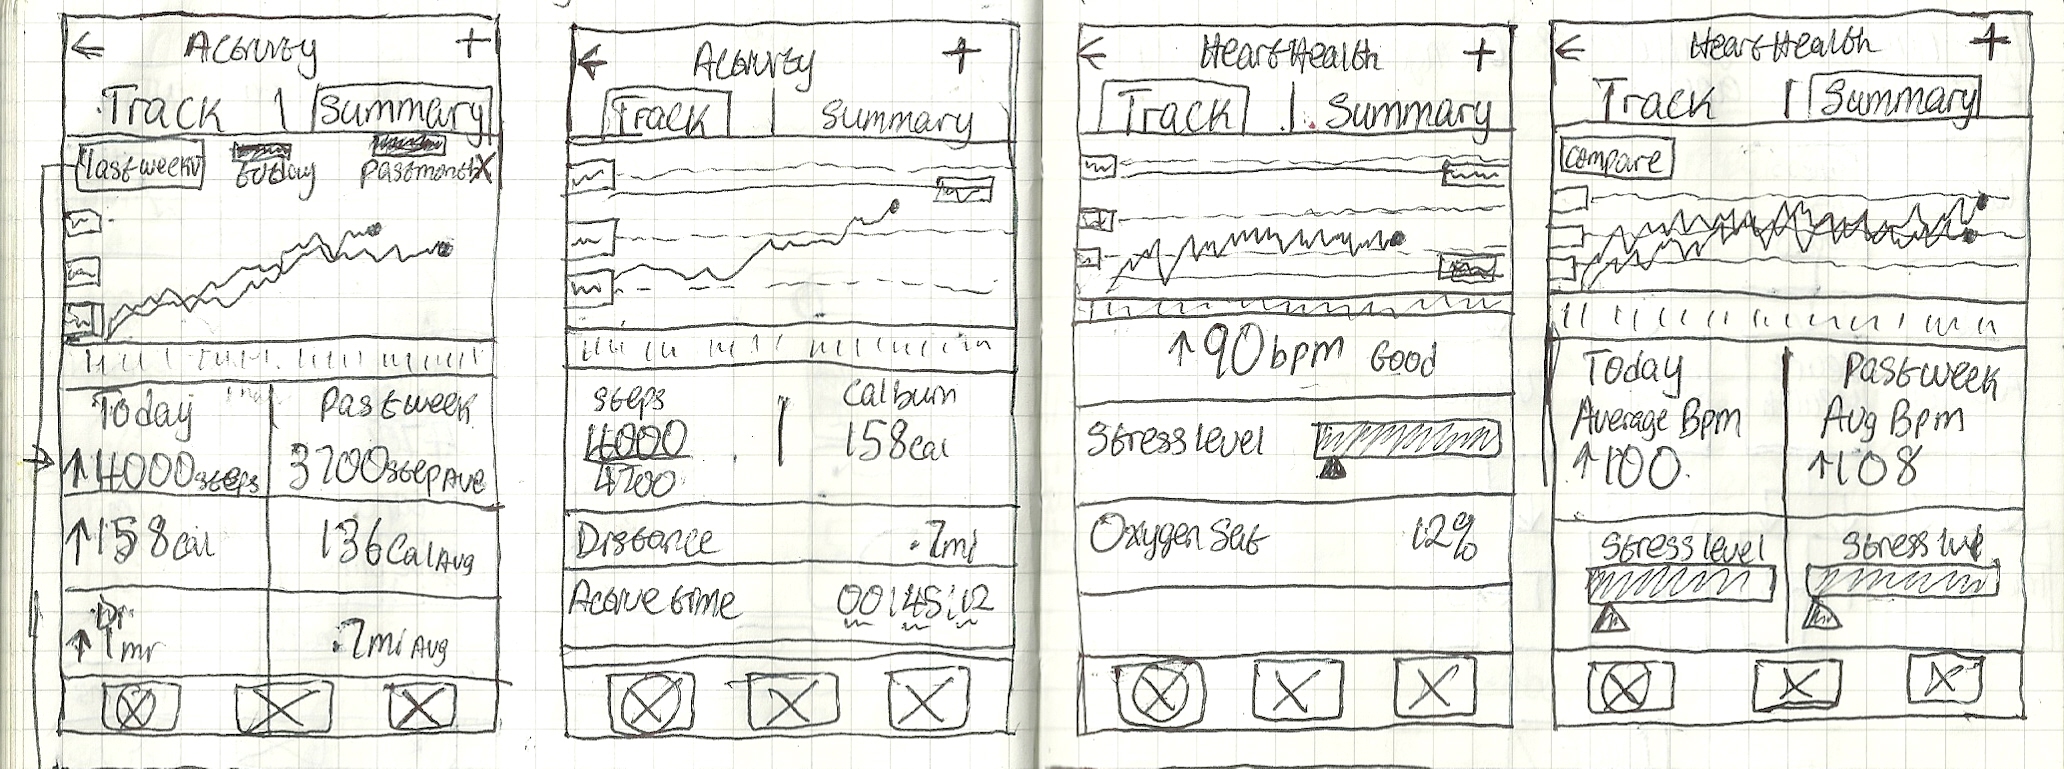 ← Activity +
Track | Summary
last week today past month X
Today Past week
↑4000 steps 3700 step Ave
↑158 cal 136 Cal Avg
↑ 1 mi .7mi Avg
← Activity +
Track | Summary
steps Cal burn
4000 158 cal
4700
Distance .7mi
Active time 00:45:12
← Heart Health +
Track | Summary
↑90 bpm Good
Stress level
Oxygen Sat 12%
← Heart Health +
Track | Summary
Compare
Today Past week
Average Bpm Avg Bpm
↑100 ↑108
Stress level Stress lvl